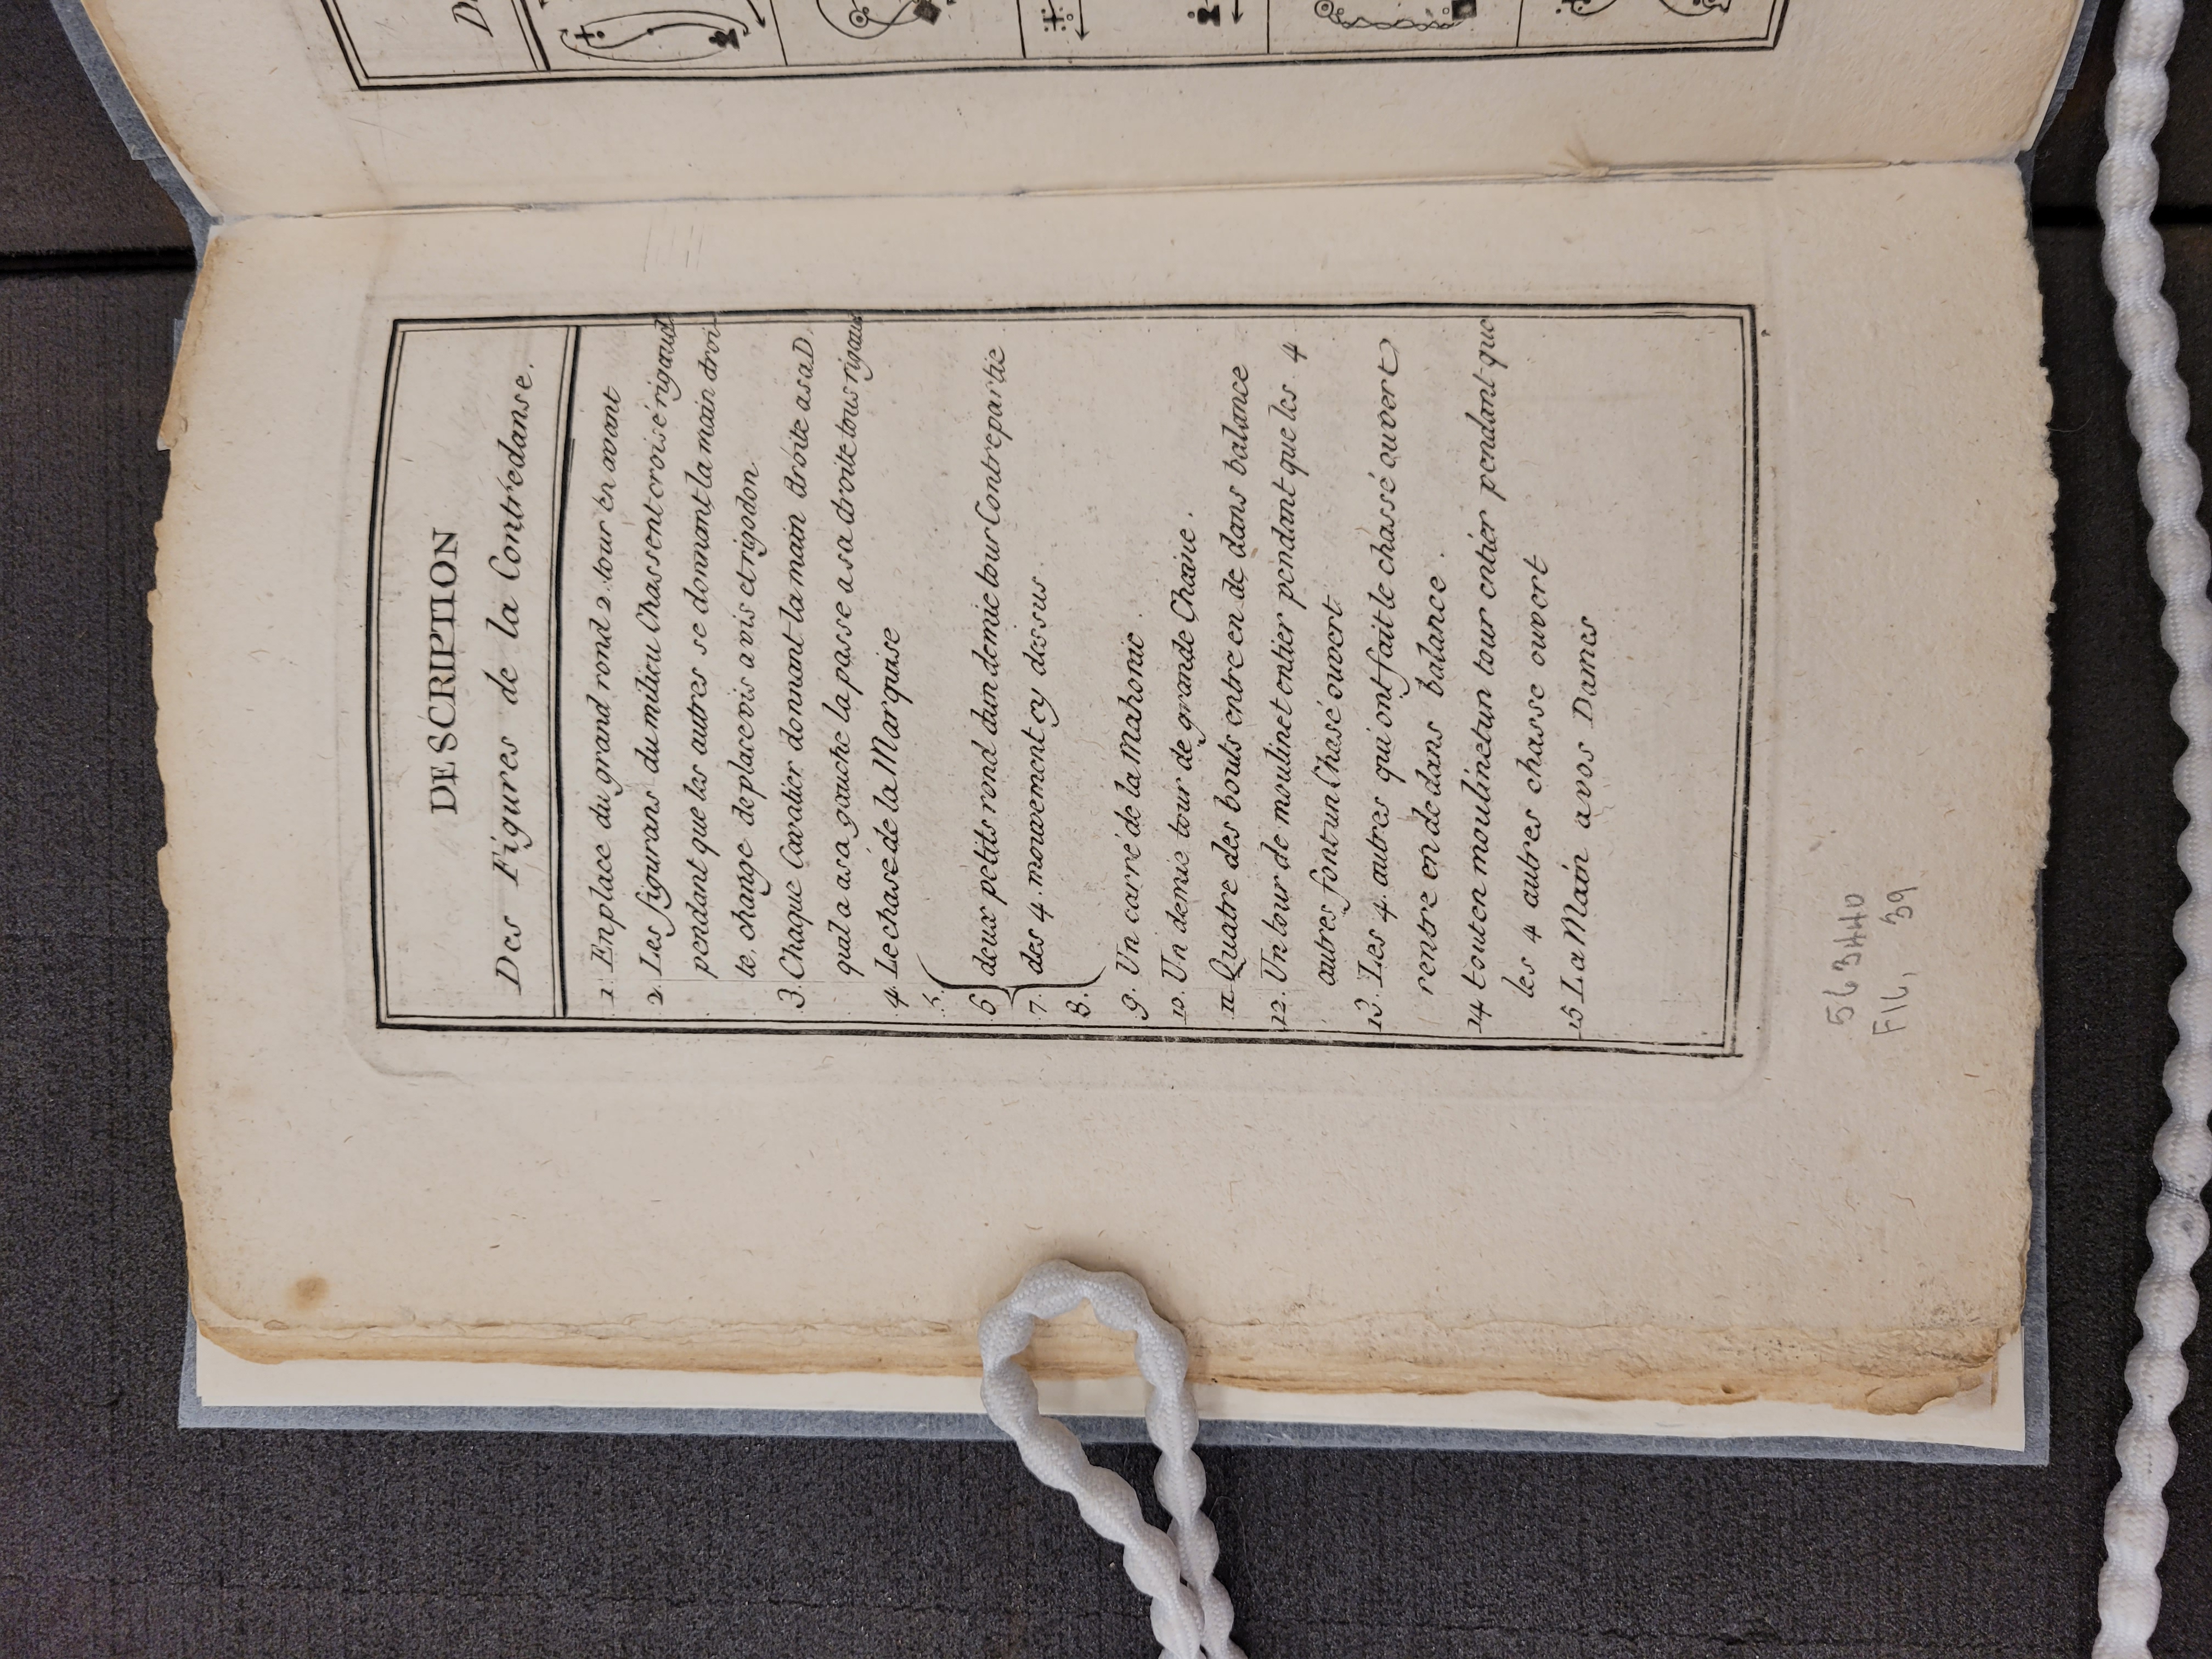 DESCRIPTION
Des Figures de la Contredanse.
1. En place du grand rond 2. tour en avant
2. Les figurans du milieu Chassent croisé rigaud
pendant que les autres se donnant la main droi-
te. change de place vis a vis et rigodon
3. Chaque Cavalier donnant la main droite a sa D.
qu'al a asa gauche la passe a sa droite tous rigau
4. Le chasé de la Marquise
5.
6 deux petits rond d'un demie tour Contrepartie
7. des 4. mouvement cy dessus.
8.
9. Un carré de la Mahonie.
10. Un demie tour de grande Chaine.
11 Quatre des bouts entre en de dans balance
12. Un tour de moulinet entier pendant que les 4
autres font un Chasé ouvert.
13. Les 4. autres qui ont fait le chassé ouvert
rentre en de dans balance.
14 tout en moulinet un tour entier pendant que
les 4 autres chasse ouvert
15 La Main a vos Dames
563440
FIL. 39